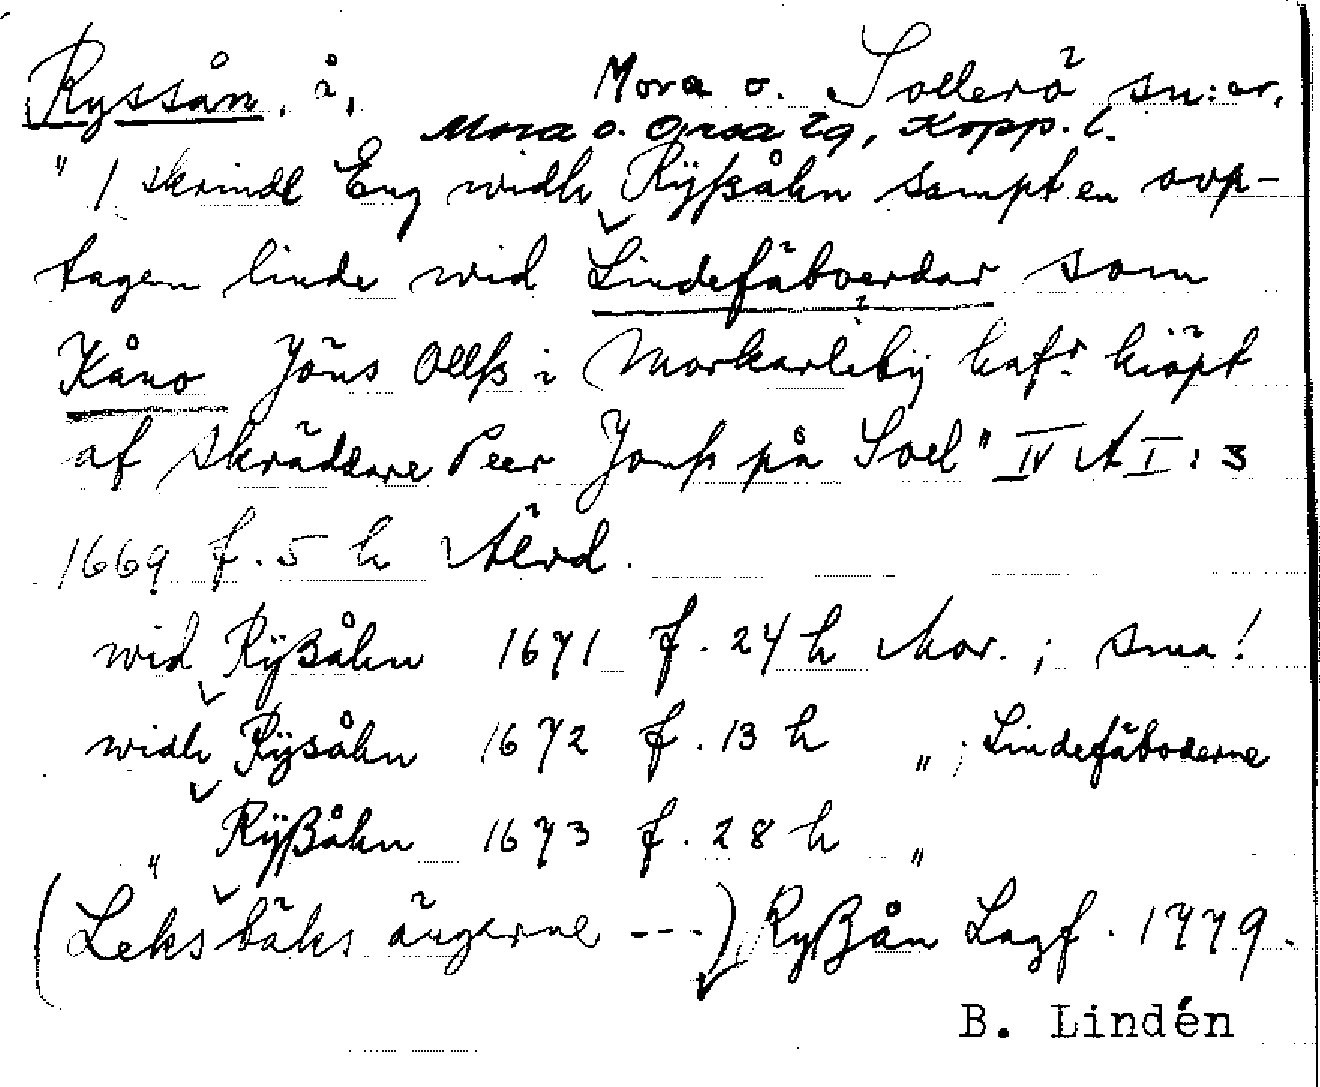 Ryssån, å, Mora o. Sollerö sn:ar,
Mora o. Orsa tg, Kopp. l.
" 1 skrindl Eng widh Rÿßåhn sampt en vvp-
tagen linde wid Lindefäboerdar som
Kåno Jöns Ollß i Morkarlebÿ hafr kiöpt
af skräddare Peer Jonß på Soel" IV A I:3
1669 f. 5 h Älvd.
wid Rÿßåhn 1671 f. 24 h Mor. ; sma!
widh Rÿsåhn 1672 f. 13 h " ; Lindefäboderne
" Rÿßåhn 1673 f. 28 h "
(Leksbäks ängerne ---) Ryßån Lagf. 1779.
B. Lindén